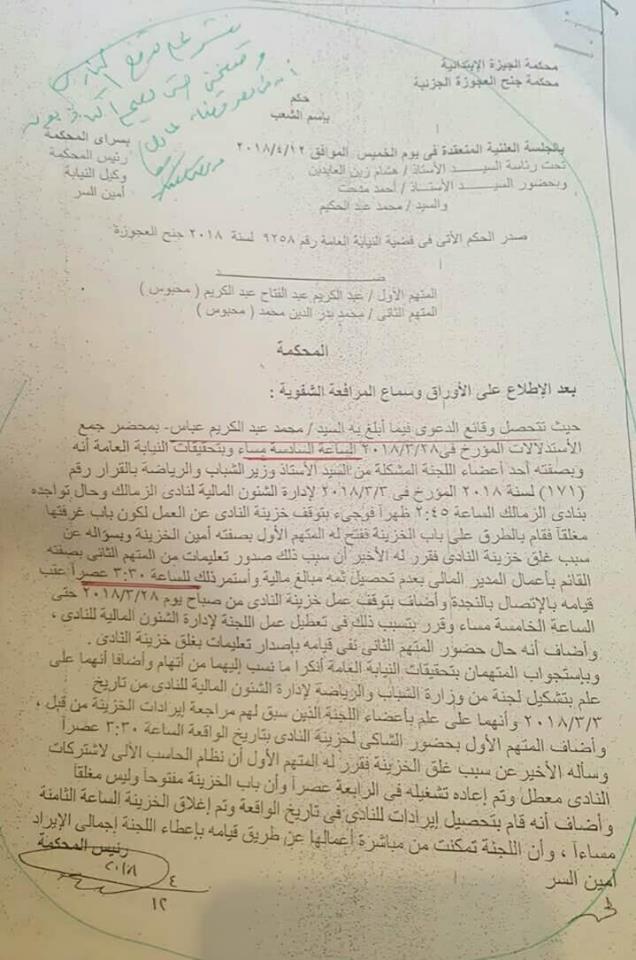 محكمة الجيزة الإبتدائية
محكمة جنح العجوزة الجزئية
حكم
بإسم الشعب
بالجلسة العلنية المنعقدة فى يوم الخميس الموافق ٢٠١٨/٤/١٢ بسراى المحكمة
تحت رئاسة السيـــد الأستاذ / هشام زين العابدين رئيس المحكمة
وبحضور السيـــد الأستـــاذ / أحمد مدحت وكيل النيابة
والسيد / محمد عبد الحكيم أمين السر
صدر الحكم الأتى فى قضية النيابة العامة رقم ٩٢٥٨ لسنة ٢٠١٨ جنح العجوزة
ضـــــــــد
المتهم الأول / عبد الكريم عبد الفتاح عبد الكريم ( محبوس )
المتهم الثانى / محمد بدر الدين محمد ( محبوس )
المحكمة
بعد الإطلاع على الأوراق وسماع المرافعة الشفوية :
حيث تتحصل وقائع الدعوى فيما أبلغ به السيد / محمد عبد الكريم عباس- بمحضر جمع
الأستدلالات المؤرخ فى ٢٠١٨/٣/٢٨ الساعة السادسة مساء وبتحقيقات النيابة العامة أنه
وبصفته أحد أعضاء اللجنة المشكلة من السيد الأستاذ وزير الشباب والرياضة بالقرار رقم
(١٧١) لسنة ٢٠١٨ المؤرخ فى ٢٠١٨/٣/٣ لإدارة الشئون المالية لنادى الزمالك وحال تواجده
بنادى الزمالك الساعة ٢:٤٥ ظهراً فوجىء بتوقف خزينة النادى عن العمل لكون باب غرفتها
مغلقاً فقام بالطرق على باب الخزينة ففتح له المتهم الأول بصفته أمين الخزينة وبسؤاله عن
سبب غلق خزينة النادى فقرر له الأخير أن سبب ذلك صدور تعليمات من المتهم الثانى بصفته
القائم بأعمال المدير المالى بعدم تحصيل ثمه مبالغ مالية وأستمر ذلك للساعة ٣:٣٠ عصراً عقب
قيامه بالإتصال بالنجدة وأضاف بتوقف عمل خزينة النادى من صباح يوم ٢٠١٨/٣/٢٨ حتى
الساعة الخامسة مساء وقرر بتسبب ذلك فى تعطيل عمل اللجنة لإدارة الشئون المالية للنادى ،
وأضاف أنه حال حضور المتهم الثانى نفى قيامه بإصدار تعليمات بغلق خزينة النادى .
وبإستجواب المتهمان بتحقيقات النيابة العامة أنكرا ما نسب إليهما من أتهام وأضافا أنهما على
علم بتشكيل لجنة من وزارة الشباب والرياضة لإدارة الشئون المالية للنادى من تاريخ
٢٠١٨/٣/٣ وأنهما على علم بأعضاء اللجنة الذين سبق لهم مراجعة إيرادات الخزينة من قبل ،
وأضاف المتهم الأول بحضور الشاكى لخزينة النادى بتاريخ الواقعة الساعة ٣:٣٠ عصراً
وسأله الأخير عن سبب غلق الخزينة فقرر له المتهم الأول أن نظام الحاسب الألى لاشتركات
النادى معطل وتم إعاده تشغيله فى الرابعة عصراً وأن باب الخزينة مفتوحاً وليس مغلقاً
وأضاف أنه قام بتحصيل إيرادات للنادى فى تاريخ الواقعة وتم إغلاق الخزينة الساعة الثامنة
مساءاً ، وأن اللجنة تمكنت من مباشرة أعمالها عن طريق قيامه بإعطاء اللجنة إجمالى الإيراد
أمين السر رئيس المحكمة
٢٠١٨
٤
١٢